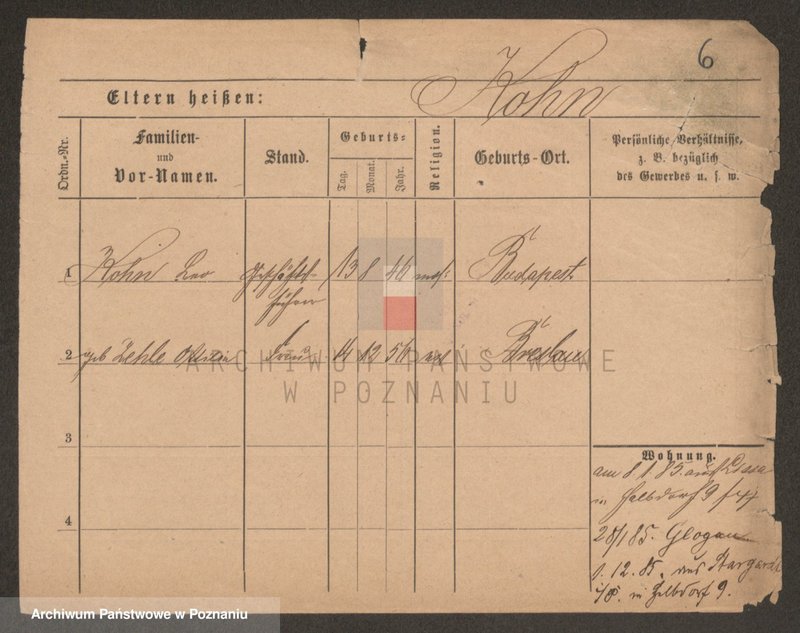 6
Eltern heißen: Kohn
Ordn.-Nr.
Familien-
und
Vor-Namen.
Stand.
Geburts-
Tag.
Monat.
Jahr.
Religion.
Geburts-Ort.
Persönliche Verhältnisse,
z. B. bezüglich
des Gewerbes u. s. w.
1 Kohn Leo Geschäfts- 13 8 46 mos. Budapest
führer
2 geb Frau 14 12 56 Breslau
ARCHIWUM PAŃSTWOWE
W POZNANIU
3
Wohnung.
am 8.1.85. aus Lissa
in 9
4
28/1 85. Glogau
1.12.85. aus Stargardt
in 9.
Archiwum Państwowe w Poznaniu